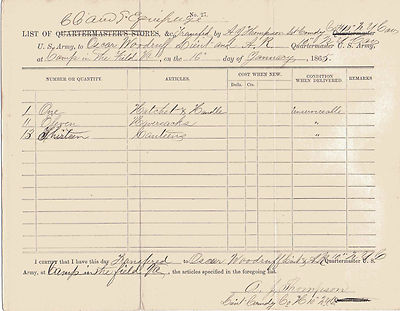 C C and G Equipage
No. 7.
LIST OF QUARTERMASTER'S STORES, &c., Transfered by A. J. Thompson Lt Comdg Co
U. S. Army, to Oscar Woodruff Lieut and A. R. Quartermaster U. S. Army,
at Camp in the Field Va. on the 16" day of January, 1865.
NUMBER OR QUANTITY. ARTICLES. COST WHEN NEW. CONDITION WHEN DELIVERED. REMARKS
Dolls. Cts.
1 One Hatchet & Handle Unserviceable
11 Eleven Haversacks "
13 Thirteen Canteens "
I CERTIFY that I have this day Transfered to Oscar Woodruff Lieut & A. R. Quartermaster U. S.
Army, at Camp in the field Va, the articles specified in the foregoing list.
A. J. Thompson
Lieut Comdg Co